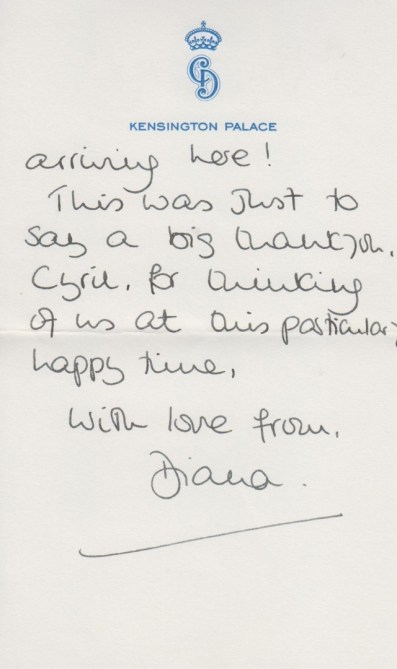 KENSINGTON PALACE
arriving here!
This was just to
say a big thankyou,
Cyril, for thinking
of us at this particularly
happy time,
With love from,
Diana.